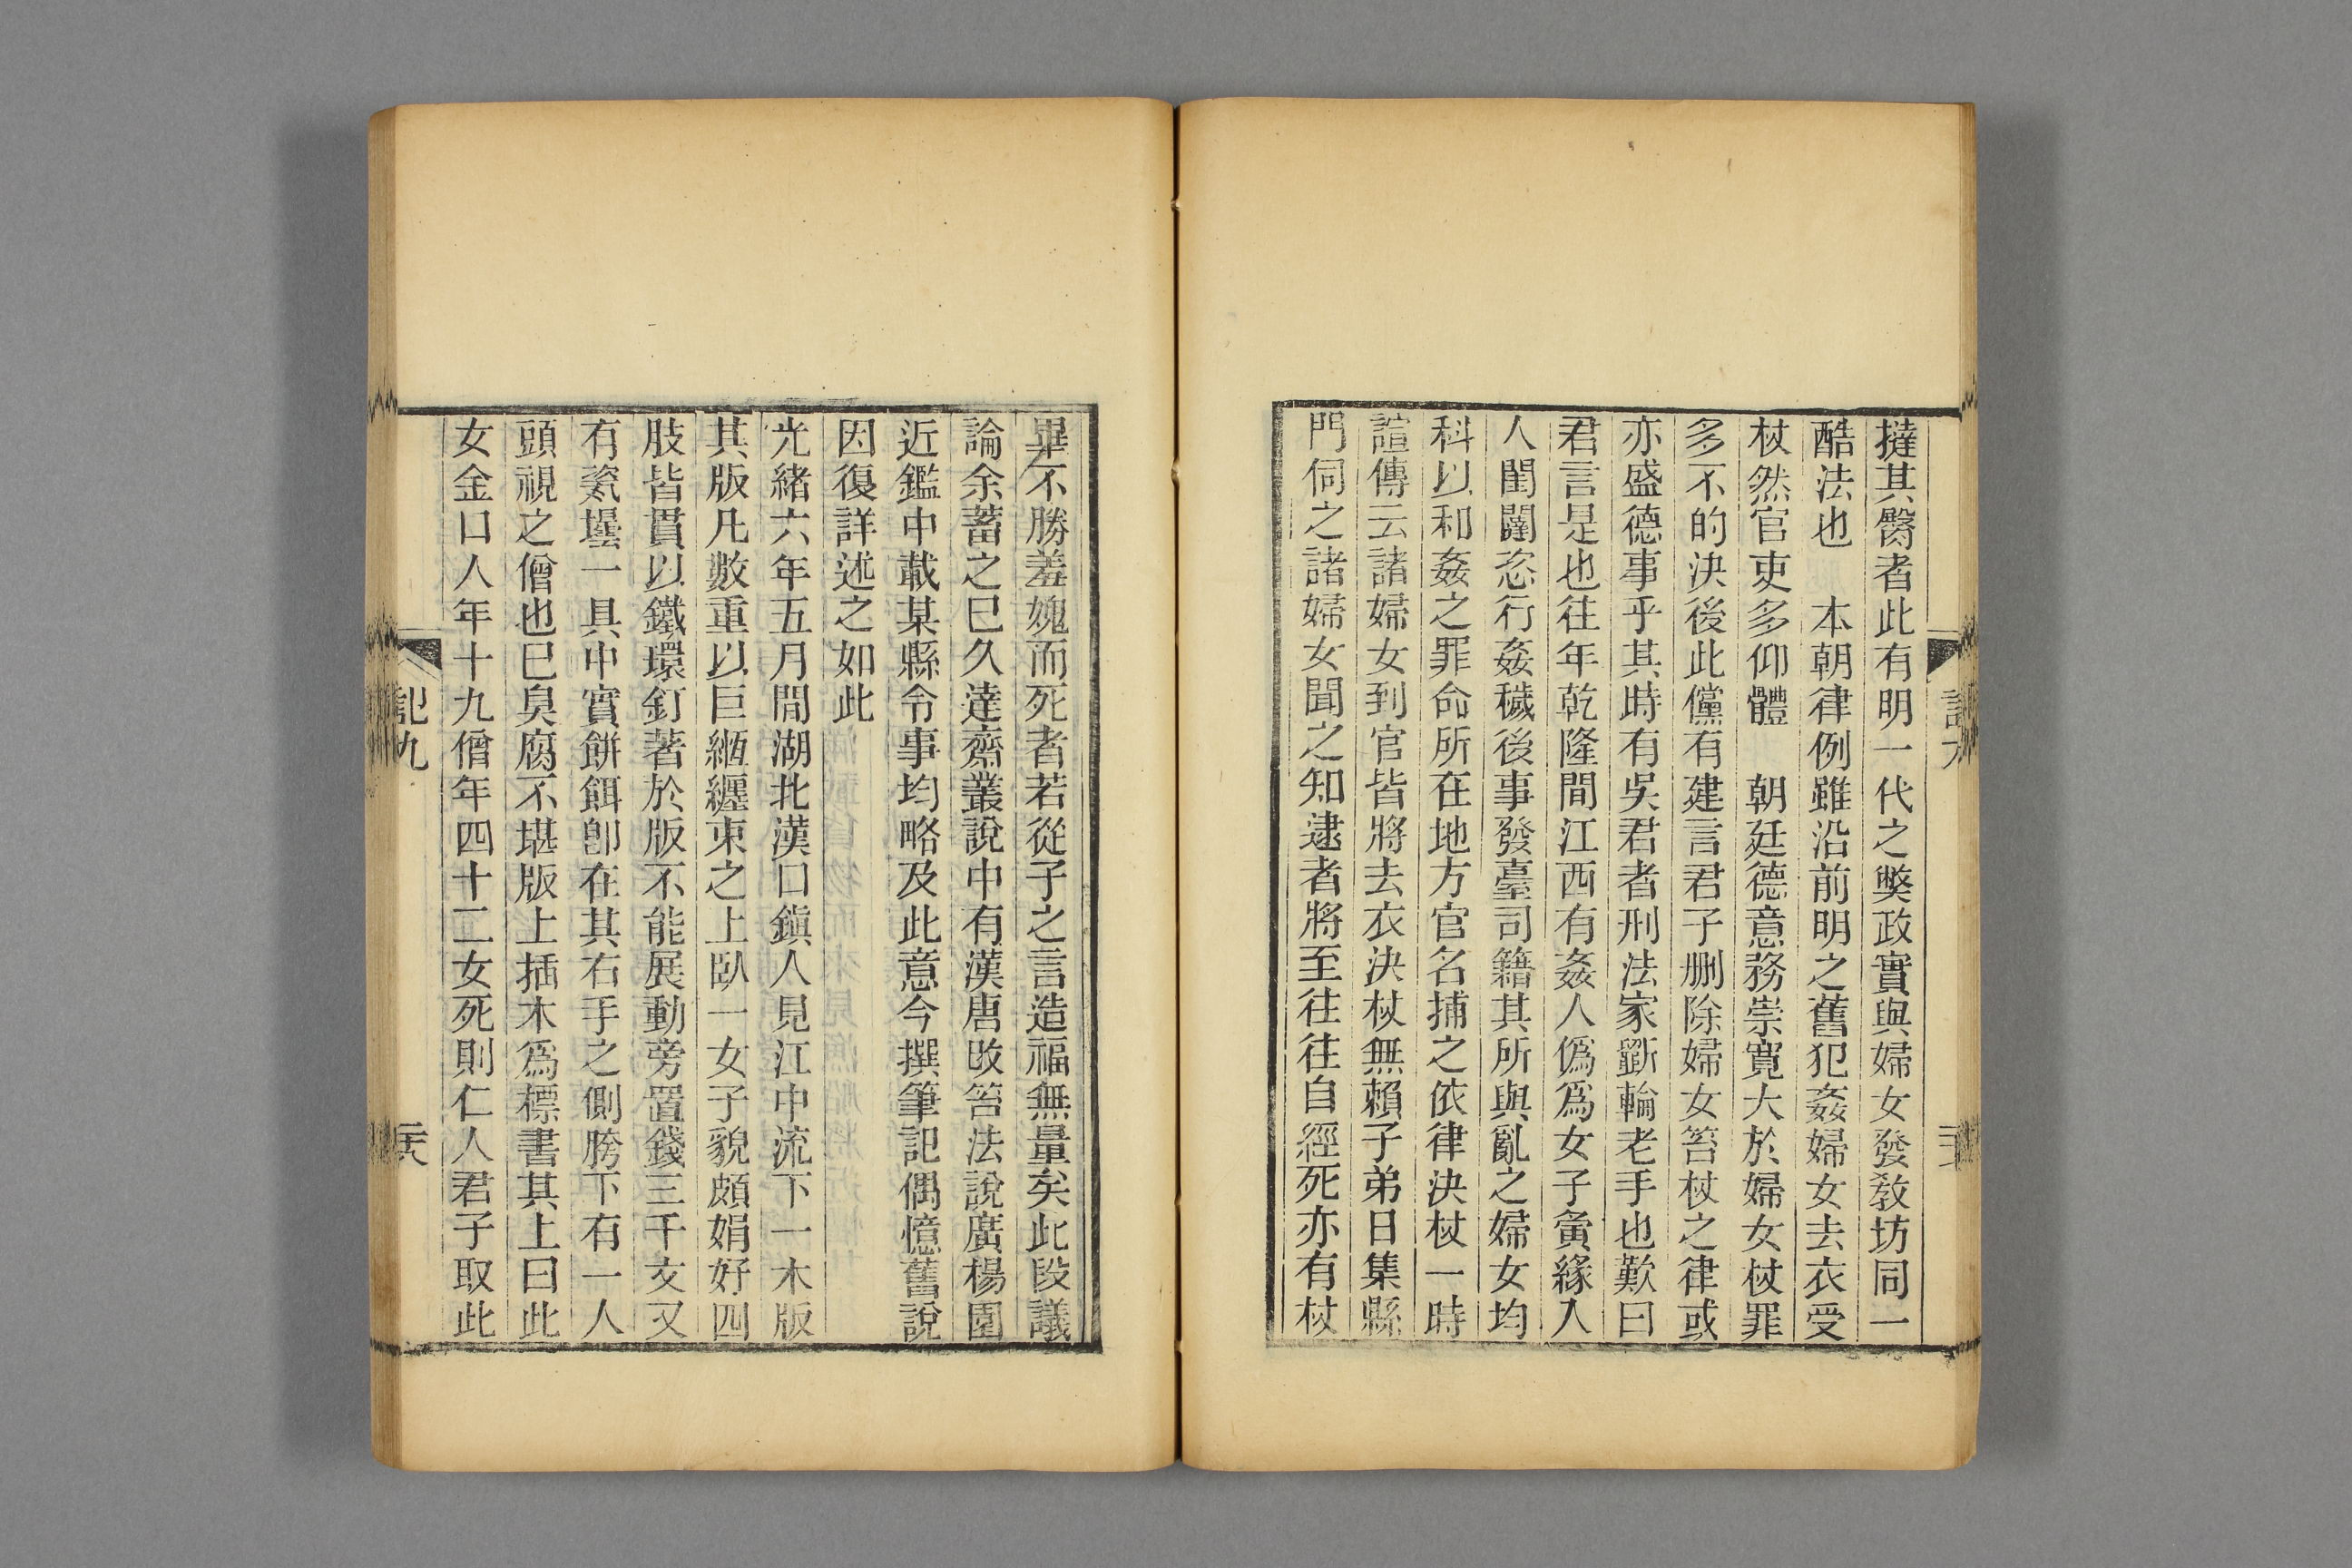 撻其臀者此有明一代之獘政實與婦女發教坊同一
酷法也　本朝律例雖沿前明之舊犯姦婦女去衣受
杖然官吏多仰體　朝廷德意務崇寬大於婦女杖罪
多不的決後此儻有建言君子刪除婦女笞杖之律或
亦盛德事乎其時有吳君者刑法家斵輪老手也歎曰
君言是也往年乾隆間江西有姦人僞爲女子夤緣入
人閨闥恣行姦穢後事發臺司籍其所與亂之婦女均
科以和姦之罪命所在地方官名捕之依律決杖一時
諠傳云諸婦女到官皆將去衣決杖無賴子弟日集縣
門伺之諸婦女聞之知逮者將至往往自經死亦有杖
畢不勝羞媿而死者若從子之言造福無量矣此段議
論余蓄之已久達齋叢說中有漢唐改笞法說廣楊園
近鑑中載某縣令事均略及此意今撰筆記偶憶舊說
因復詳述之如此
光緒六年五月間湖北漢口鎭人見江中流下一木版
其版凡數重以巨緪纒束之上臥一女子貌頗娟好四
肢皆貫以鐵環釘著於版不能展動旁置錢三千文又
有瓷壜一具中實餅餌卽在其右手之側胯下有一人
頭視之僧也已臭腐不堪版上插木爲標書其上曰此
女金口人年十九僧年四十二女死則仁人君子取此
記九